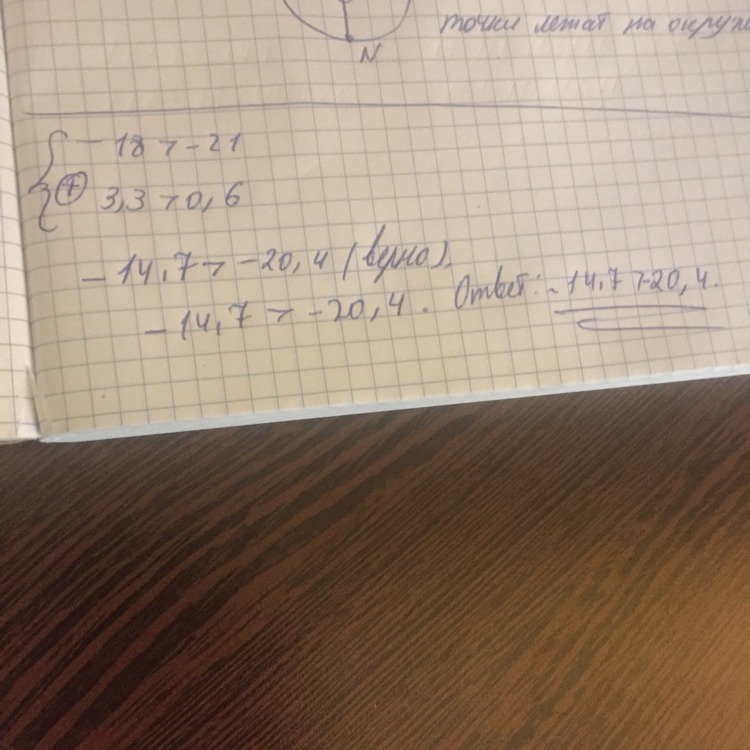 N
точки лежат на окруж
- 18 > -21
+ 3,3 > 0,6
- 14,7 > -20,4 (верно).
- 14,7 > -20,4. Ответ: -14,7 > -20,4.